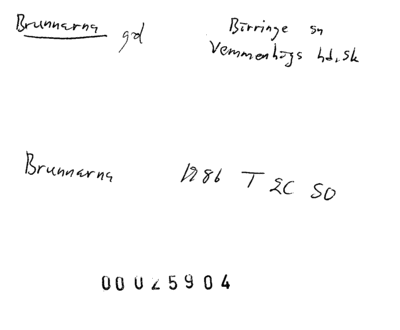 Brunnarna gd
Börringe sn
Vemmenhögs hd, Sk
Brunnarna 1986 T 2C SO
00025904